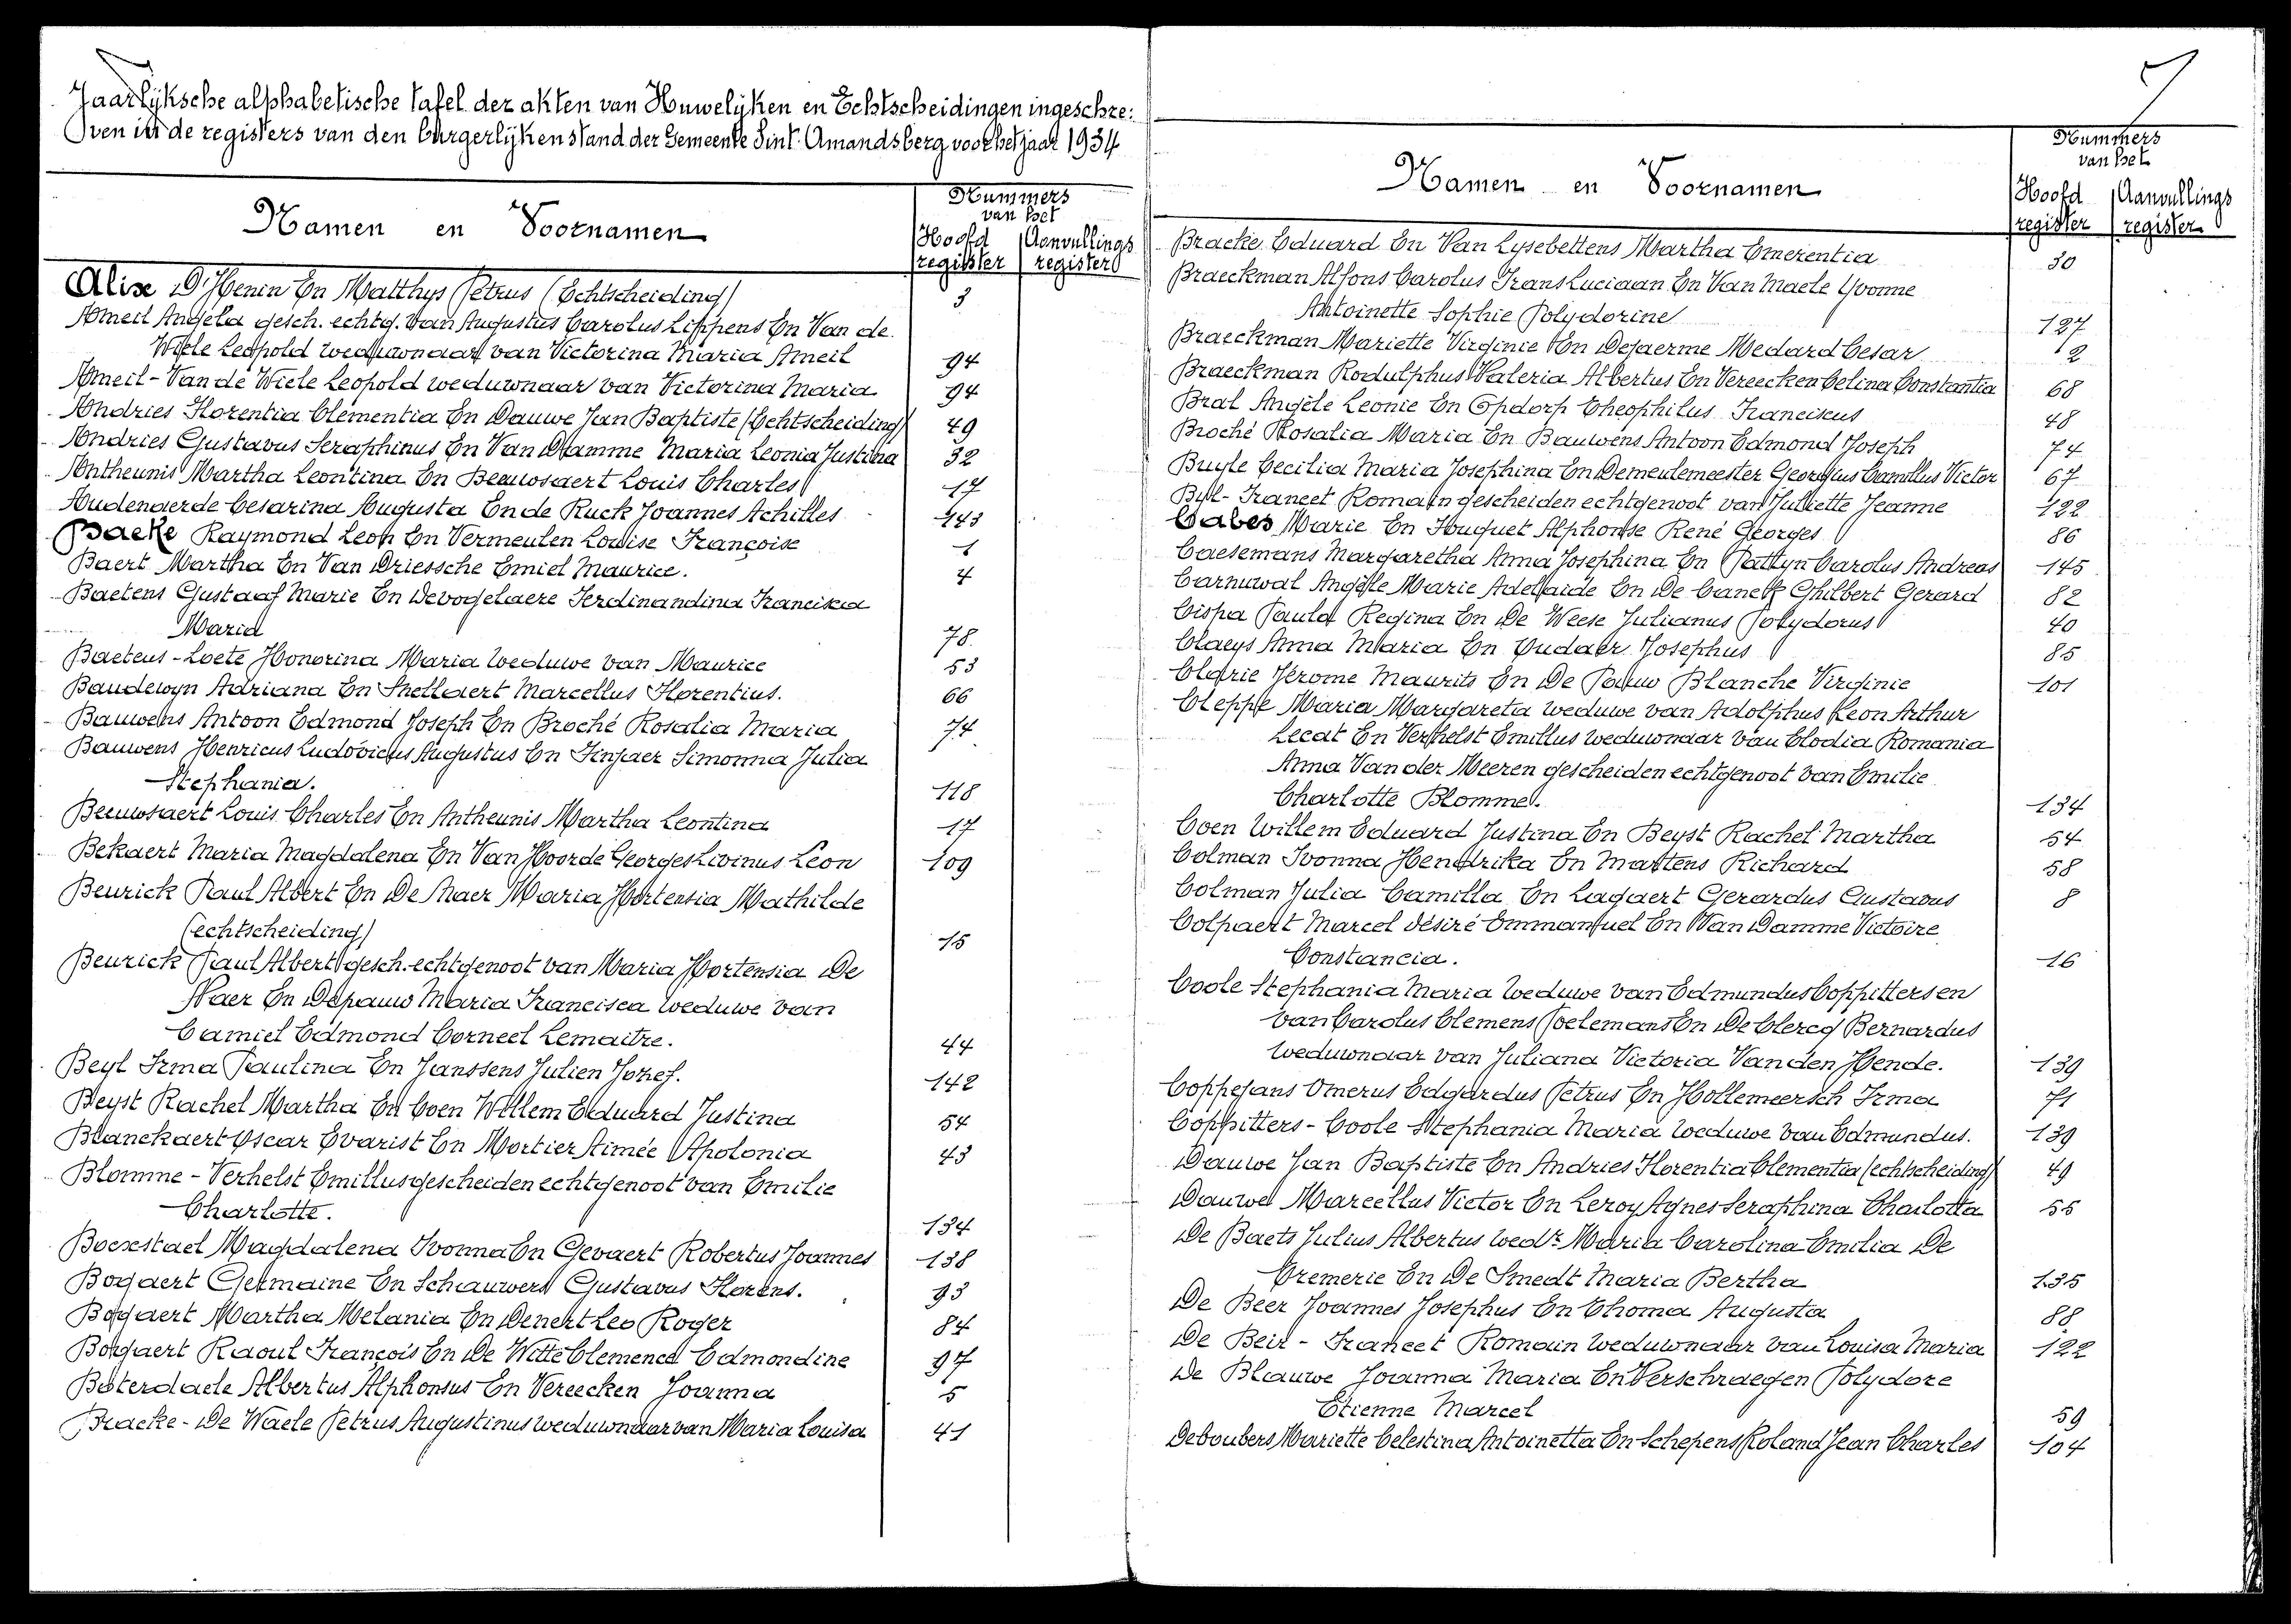 Jaarlijksche alphabetische tafel der akten van Huwelijken en Echtscheidingen ingeschre:
ven in de registers van den burgerlijken stand der Gemeente Sint-Amandsberg voor het jaar 1934
Namen en Voornamen
Nummers
van het
Hoofd register
Aanvullings register
Alixe D'Henin En Matthys Petrus (Echtscheiding) 3
Ameil Angela gesch. echtg. van Augustus Carolus Lippens En Van de
Wiele Leopold weduwnaar van Victorina Maria Ameil 94
Ameil - Van de Wiele Leopold weduwnaar van Victorina Maria 94
Andries Florentia Clementia En Dauwe Jan Baptiste (Echtscheiding) 49
Andries Gustavus Seraphinus En Van Damme Maria Leonia Justina 32
Antheunis Martha Leontina En Beeuwsaert Louis Charles 17
Audenaerde Cesarina Augusta En de Ruck Joannes Achilles 143
Backe Raymond Leon En Vermeulen Louise Françoise 1
Baert Martha En Van Driessche Emiel Maurice. 4
Baetens Gustaaf Marie En Devogelaere Ferdinandina Francisca
Maria 78
Baeteus - Loete Honorina Maria Weduwe van Maurice 53
Baudewyn Adriana En Snellaert Marcellus Florentius. 66
Bauwens Antoon Edmond Joseph En Broché Rosalia Maria 74
Bauwens Henricus Ludovicus Augustus En Finjaer Simonna Julia
Stephania. 118
Beeuwsaert Louis Charles En Antheunis Martha Leontina 17
Bekaert Maria Magdalena En Van Hoorde Georges Livinus Leon 109
Beurick Paul Albert En De Naer Maria Hortensia Mathilde
(echtscheiding) 15
Beurick Paul Albert gesch. echtgenoot van Maria Hortensia De
Naer En Depauw Maria Francisca weduwe van
Camiel Edmond Corneel Lemaitre. 44
Beyl Irma Paulina En Janssens Julien Jozef. 142
Beyst Rachel Martha En Coen Willem Eduard Justina 54
Blanckaert Oscar Evarist En Mortier Aimée Apolonia 43
Blomme - Verhelst Emillus gescheiden echtgenoot van Emilie
Charlotte. 134
Boexstael Magdalena Ivonna En Gevaert Robertus Joannes 138
Bogaert Germaine En Schauwers Gustavus Florens. 93
Bogaert Martha Melania En Denert Leo Roger 84
Bogaert Raoul François En De Witte Clemence Edmondine 97
Boterdaele Albertus Alphonsus En Vereecken Joanna 5
Bracke - De Waele Petrus Augustinus weduwnaar van Maria Louisa 41
Namen en Voornamen
Nummers
van het
Hoofd register
Aanvullings register
Bracke Eduard En Van Lysebettens Martha Emerentia 30
Braeckman Alfons Carolus Frans Luciaan En Van Maele Yvonne
Antoinette Sophie Polydorine 127
Braeckman Mariette Virginie En Dejaerme Medard Cesar 2
Braeckman Rodulphus Valeria Albertus En Vereecken Celina Constantia 68
Bral Angèle Leonie En Opdorp Theophilus Franciscus 48
Broché Rosalia Maria En Bauwens Antoon Edmond Joseph 74
Buyle Cecilia Maria Josephina En Demeulemeester Georgius Camillus Victor 67
Byl - Francet Romain gescheiden echtgenoot van Julliette Jeanne 122
Cabes Marie En Huguet Alphonse René Georges 86
Caesemans Margaretha Anna Josephina En Pattyn Carolus Andreas 145
Carnuwal Angèle Marie Adelaide En De Canck Ghilbert Gerard 82
Cispa Paula Regina En De Weese Julianus Polydorus 40
Claeys Anna Maria En Oudaer Josephus 85
Clarie Jérome Maurits En De Pauw Blanche Virginie 101
Cleppe Maria Margareta weduwe van Adolphus Leon Arthur
Lecat En Verhelst Emillus weduwnaar van Clodia Romania
Anna Van der Meeren gescheiden echtgenoot van Emilie
Charlotte Blomme. 134
Coen Willem Eduard Justina En Beyst Rachel Martha 54
Colman Ivonna Hendrika En Martens Richard 58
Colman Julia Camilla En Lagaert Gerardus Gustavus 8
Colpaert Marcel désiré Emmanuel En Van Damme Victoire
Constancia. 16
Coole Stephania Maria Weduwe van Edmundus Coppitters en
van Carolus Clemens Poelemans En De Clercq Bernardus
weduwnaar van Juliana Victoria Van den Hende. 139
Coppejans Omerus Edgardus Petrus En Hollemeersch Irma 71
Coppitters - Coole Stephania Maria Weduwe van Edmundus. 139
Dauwe Jan Baptiste En Andries Florentia Clementia (echtscheiding) 49
Dauwe Marcellus Victor En Leroy Agnes Seraphina Charlotta 55
De Baets Julius Albertus Wedr Maria Carolina Emilia De
Premerie En De Smedt Maria Bertha 135
De Beer Joannes Josephus En Thoma Augusta 88
De Beir - Francet Romain Weduwnaar van Louisa Maria 122
De Blauwe Joanna Maria En Verschraegen Polydore
Etienne Marcel 59
Deboubers Mariette Celestina Antoinetta En Schepens Roland Jean Charles 104